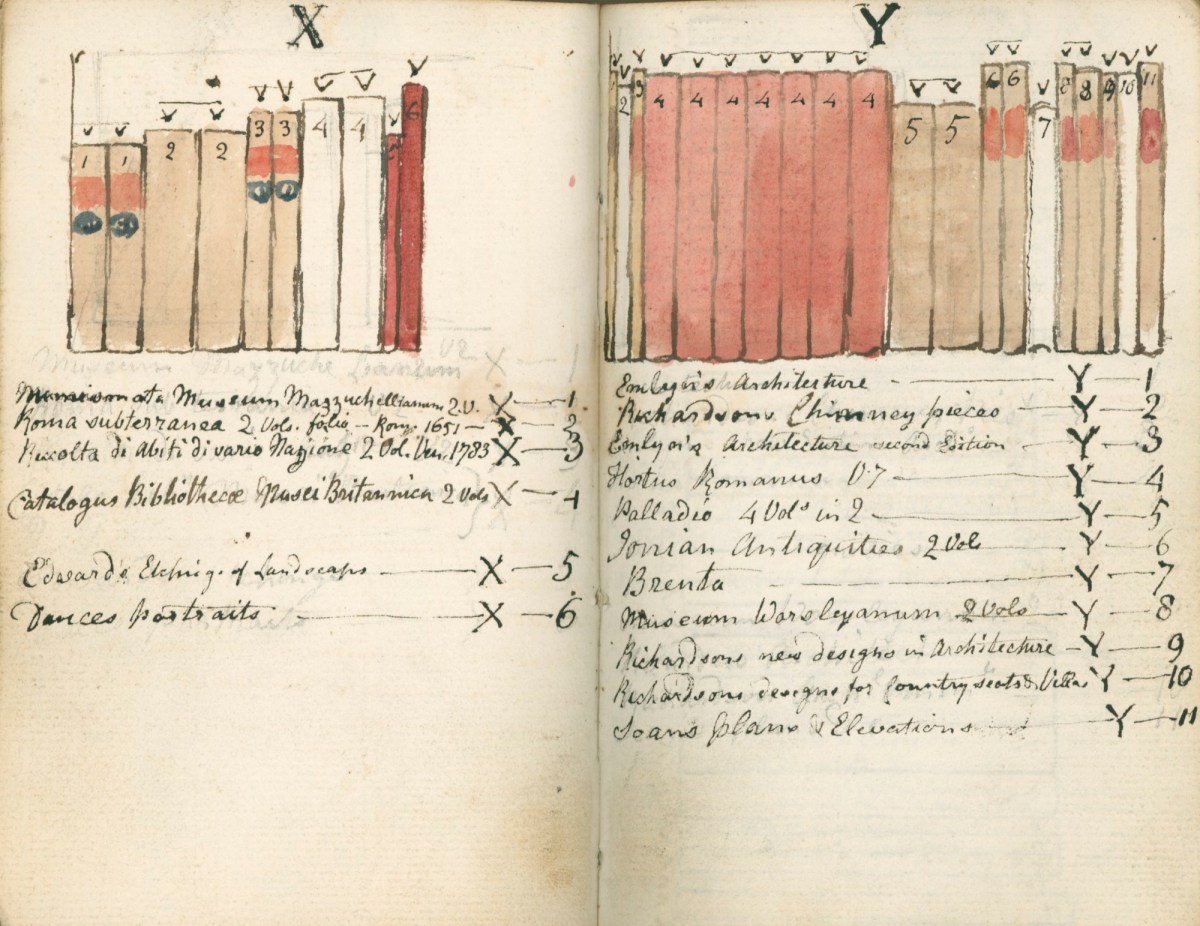 X
1 1 2 2 3 3 4 4 5 6
Museum Mazzuchelianum V2 X 1
Numismata Museum Mazzuchellianum 2.V. X — 1
Roma subterranea 2 Vols. folio — Rom. 1651 — X — 2
Raccolta di Abiti di vario Nazione 2 Vol. Ven. 1783 X — 3
Catalogus Bibliothecæ Musei Britannica 2 Vols X — 4
Edwards Etching. of Landscaps — X — 5
Dances Portraits — X — 6
Y
1 2 3 4 4 4 4 4 4 4 5 5 6 6 7 8 8 9 10 11
Emlyn's Architecture — Y — 1
Richardsons Chimney pieces — Y — 2
Emlyn's Architecture second Edition — Y — 3
Hortus Romanus V7 — Y — 4
Palladio 4 Vols in 2 — Y — 5
Ionian Antiquities 2 Vols — Y — 6
Brenta — Y — 7
Museum Worsleyanum 2 Vols — Y — 8
Richardsons new designs in Architecture — Y — 9
Richardsons designs for Country seats & Villas Y — 10
Soans plans & Elevations Y — 11